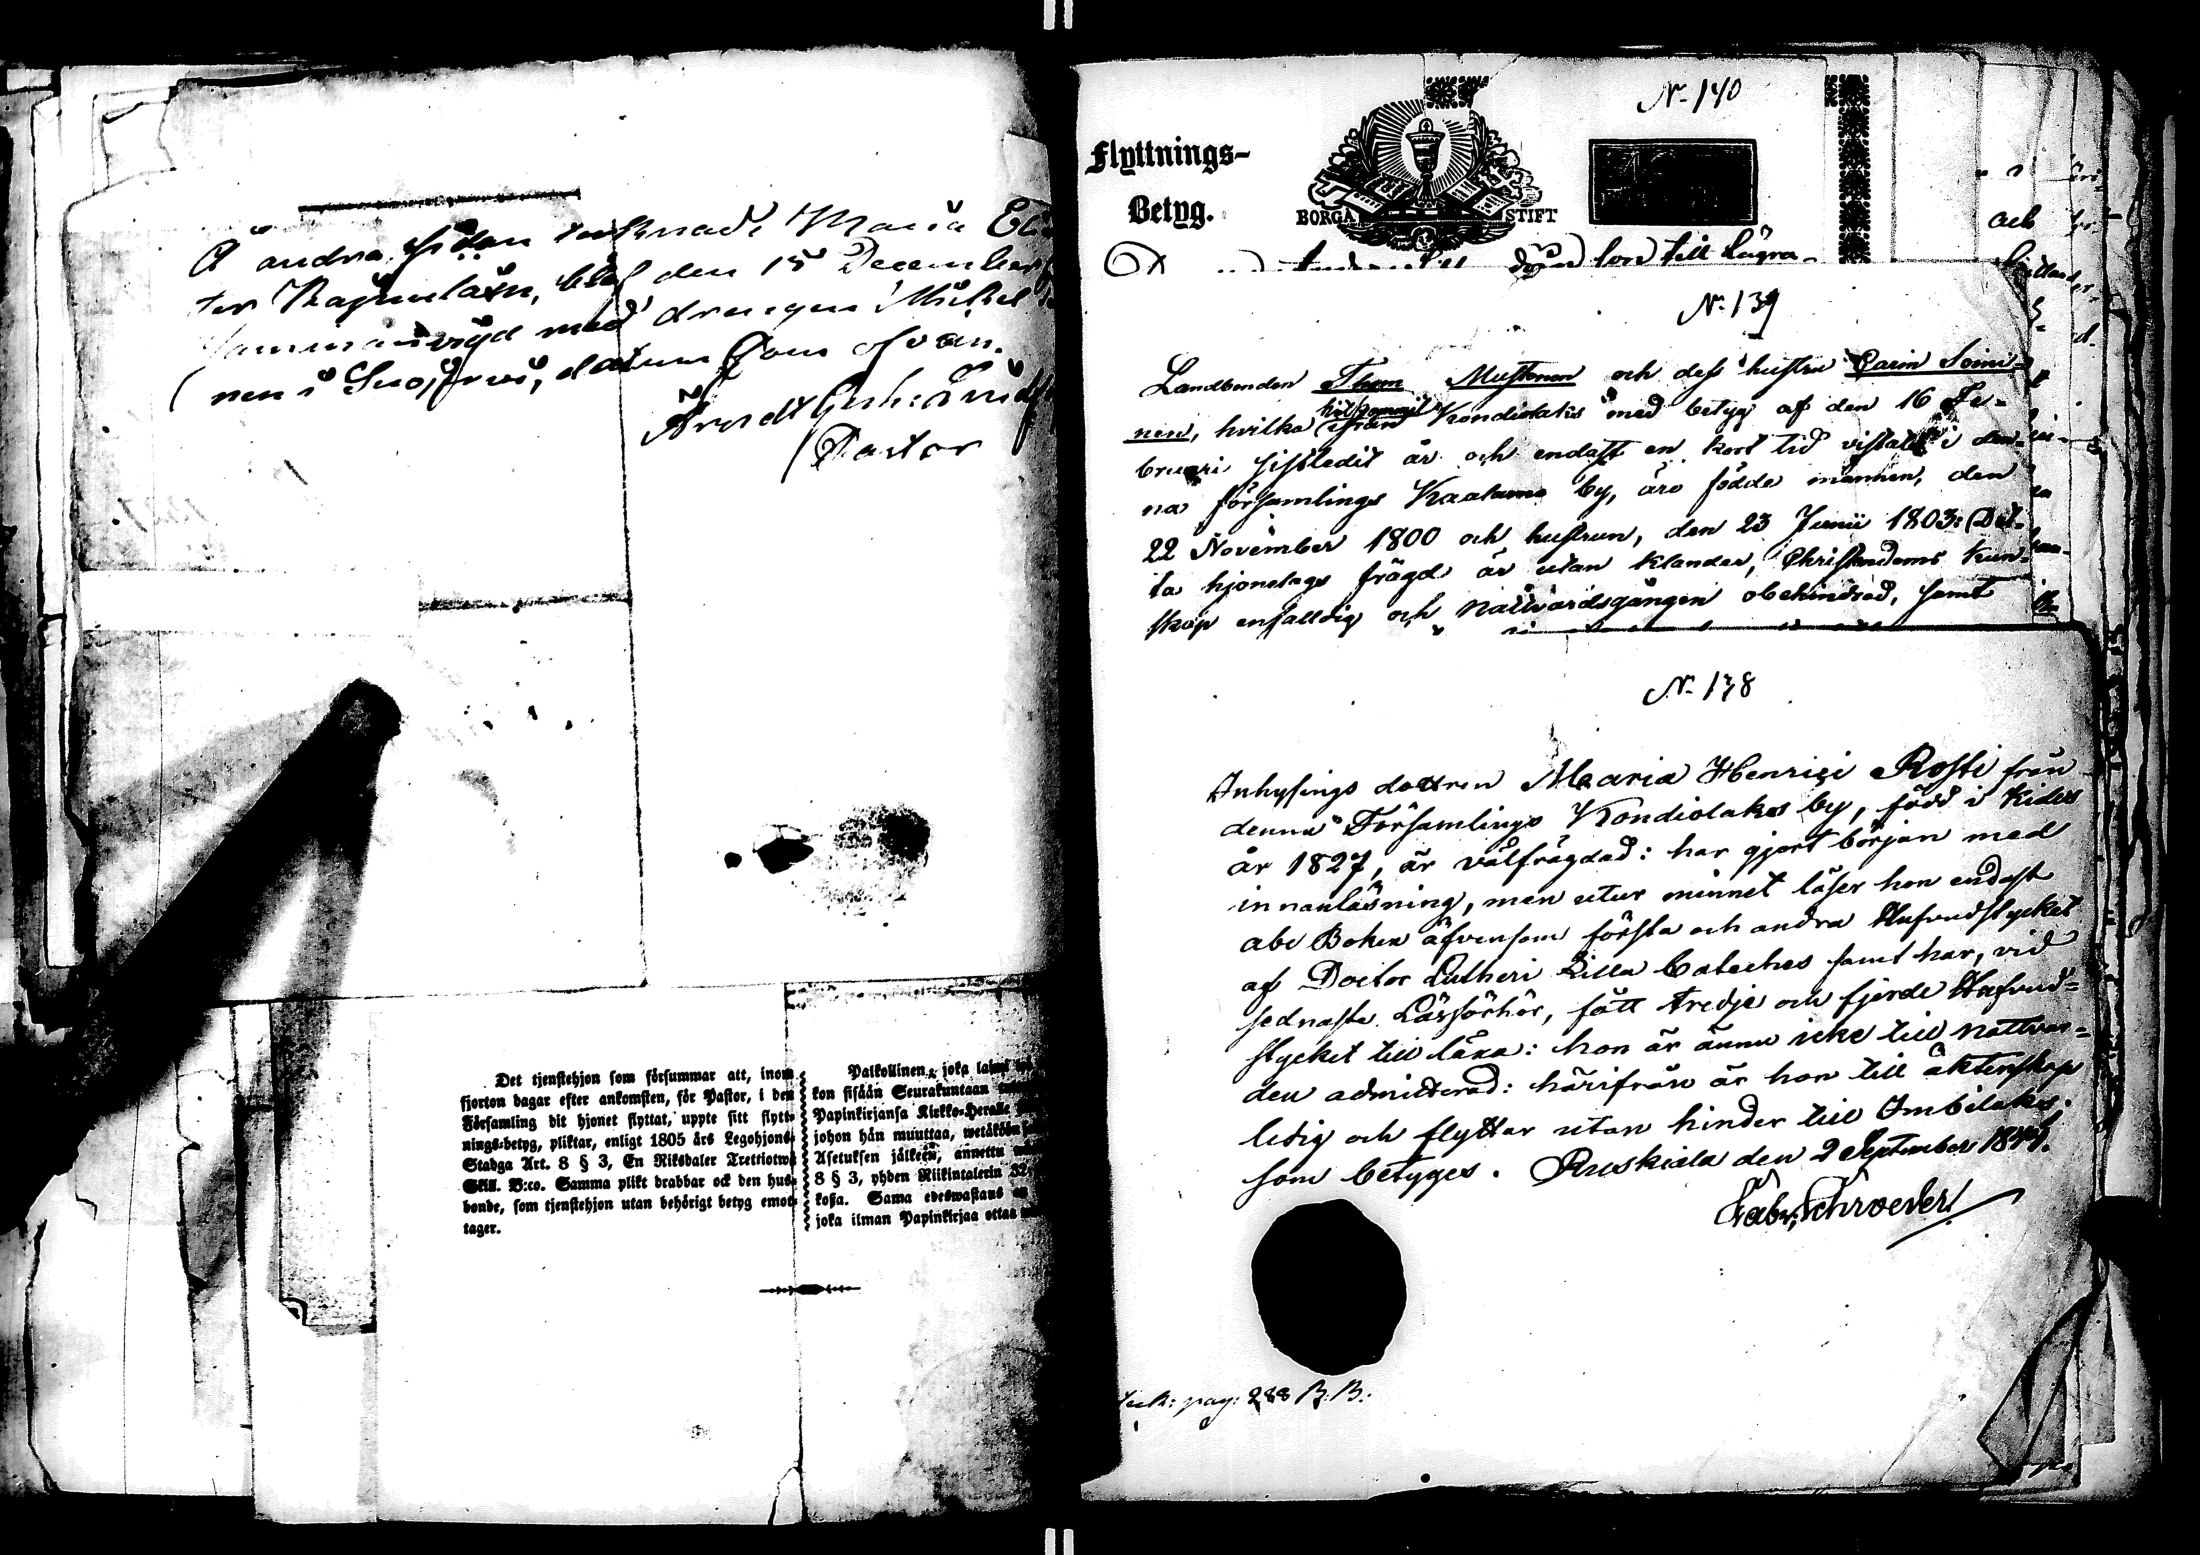 Å andra sidan tecknade Maria
ter Kajmolain, blef den 15 December
Sammanvigd med drengen Mickel
nen i Suojerwi, datum som ofvan.
Arndt Joh:
Pastor
Det tjenstehjon som försummar att, inom
fjorton dagar efter ankomsten, för Pastor, i den
Församling dit hjonet flyttat, uppte sitt flytt-
nings-betyg, pliktar, enligt 1805 års Legohjons-
Stadga Art. 8 § 3, En Riksdaler Trettiotwå
Skill. B:co. Samma plikt drabbar ock den hus-
bonde, som tjenstehjon utan behörigt betyg emot-
tager.
Palkollinen, joka
kon sisään Seurakuntaan
Papinkirjansa Kirkko-Heralle
johon hän muuttaa, wetäköön
Asetuksen jälkeen, annettu
8 § 3, yhden Riikintalerin 32
kossa. Sama edeswastaus on
joka ilman Papinkirjaa ottaa
N:140
Flyttnings-
Betyg.
BORGÅ STIFT
till Lägra-
N:139
Landbonden Thom Mustonen och dess hustru Carin Soini-
nen, hvilka hitkommit ifrån Kondiolaks med betyg af den 16 Fe-
bruari sistledit år och endast en kort tid vistats i den-
na församlings Kaatamo by, äro födde mannen, den
22 November 1800 och hustrun, den 23 Junii 1803: Det-
ta hjonelags frägd är utan klander, Christendoms kun-
skap enfalldig och nattvardsgången obehindrad, samt
N:138
Inhysings dottren Maria Henrici Rosti från
denna Församlings Kondiolaks by, född i Kides
år 1827, är välfrägdad: har gjort början med
innanläsning, men utur minnet läser hon endast
abc Boken äfvensom första och andra Hufvudstycket
af Doctor Lutheri Lilla Cateches samt har, vid
sednaste Läsförhör, fått tredje och fjerde Hufvud-
stycket till läxa: hon är ännu icke till nattvar-
den admitterad: härifrån är hon till äktenskap
ledig och flyttar utan hinder till Imbilaks.
som betyges. Ruskiala den 2 September 1844.
Gabr. Schroeder
pag: 288 B.B: